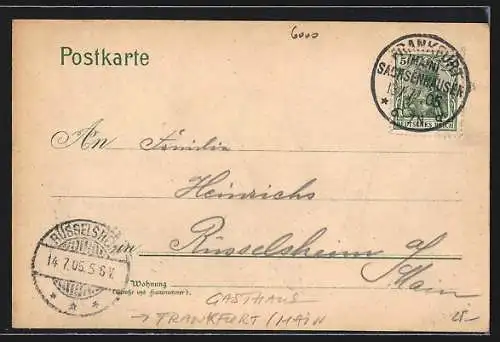 6000
Postkarte
FRANKFURT
(MAIN)
SACHSENHAUSEN
DEUTSCHES REICH
An Familie
Heinrichs
in Rüsselsheim a/
Main
RÜSSELSHEIM
14.7.05.5-6V.
Wohnung
(Straße und Hausnummer).
GASTHAUS
→ FRANKFURT / MAIN
25.–